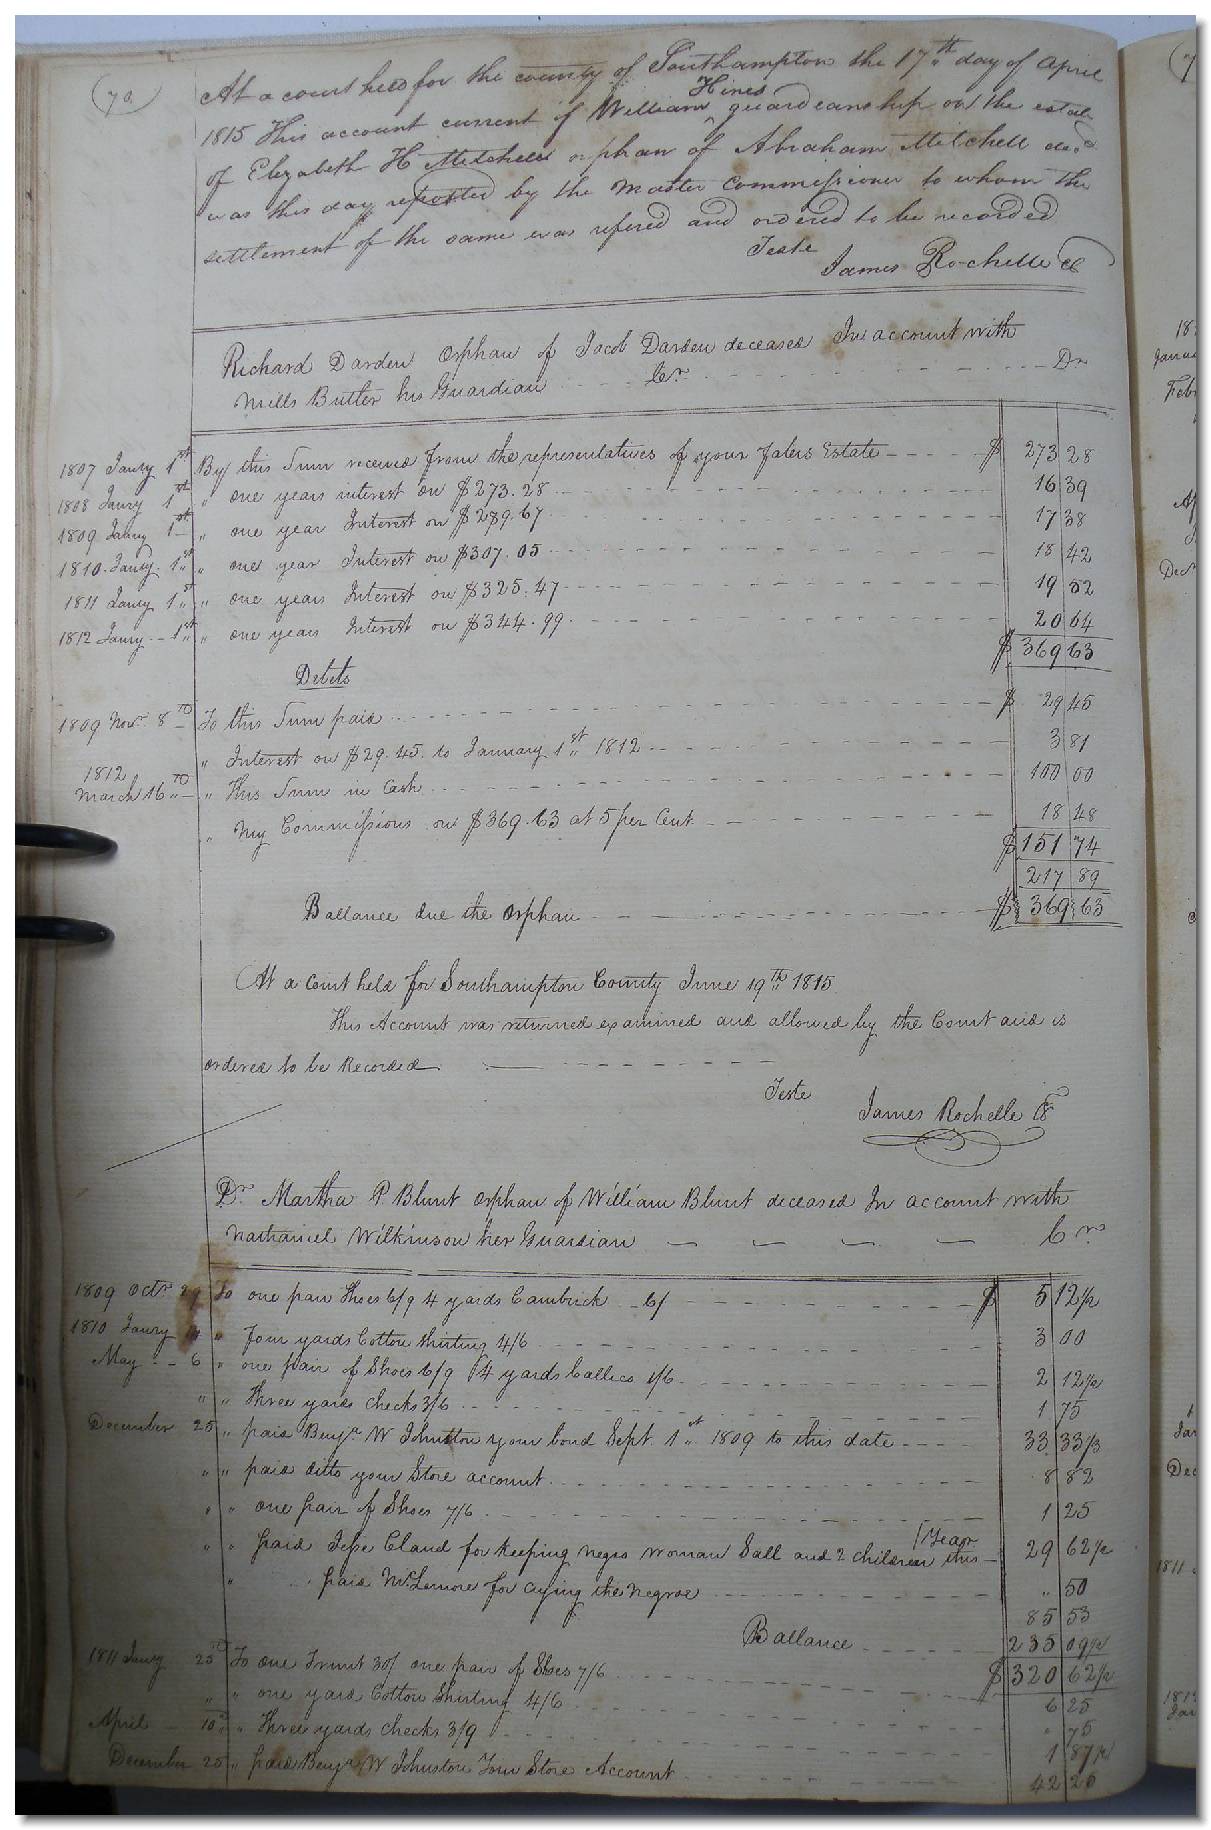 70
At a court held for the county of Southampton the 17th day of April
Hines
1815 This account current of William guardeanship on the estate
of Elizabeth H Mitchell orphan of Abraham Mitchell decd
was this day reported by the Master Commissioner to whom the
settlement of the same was refered and ordered to be recorded
Teste
James Rochelle CC
Richard Darden Orphan of Jacob Darden deceased In account with
Mills Butler his Guardian Cr Dr
1807 Janry 1st By this Sum received from the representatives of your Fathers Estate $ 273 28
1808 Janry 1st " one years interest on $273.28 16 39
1809 Janry 1st " one year Interest on $289.67 17 38
1810 Janry 1st " one year Interest on $307.05 18 42
1811 Janry 1st " one years Interest on $325.47 19 52
1812 Janry 1st " one years Interest on $344.99 20 64
$ 369 63
Debets
1809 Novr 8th To this Sum paid $ 29 45
" Interest on $29.45 to January 1st 1812 3 81
1812
March 16th " This Sum in Cash 100 00
" My Commissions on $369.63 at 5 per Cent 18 48
$ 151 74
217 89
Ballance due the Orphan $ 369 63
At a Court held for Southampton County June 19th 1815
This Account was returned examined and allowed by the Court and is
ordered to be Recorded
Teste
James Rochelle CC
Dr Martha P Blunt Orphan of William Blunt deceased In account with
Nathaniel Wilkinson her Guardian Cr
1809 Octr 29 To one pair Shoes 6/9 4 yards Cambrick 6/ $ 5 12½
1810 Janry " Four yards Cotton Shirting 4/6 3 00
May 6 " one pair of Shoes 6/9 4 yards Callico 1/6 2 12½
" " Three yards checks 3/6 1 75
December 25 " paid Benjn W Johnston your bond Sept 1st 1809 to this date 33 33⅓
" " paid ditto your Store account 8 82
" " one pair of Shoes 7/6 1 25
Year
" " paid Jesse Claud for keeping negro woman Sall and 2 children this 29 62½
" paid McLemore for crying the Negroe " 50
85 53
Ballance 235 09½
$ 320 62½
1811 Janry 25th To One Trunk 30/ one pair of Shoes 7/6 6 25
" " one yard Cotton Shirting 4/6 " 75
April 10th " Three yards checks 3/9 1 87½
December 25 " paid Benja W Johnston Your Store Account 42 26